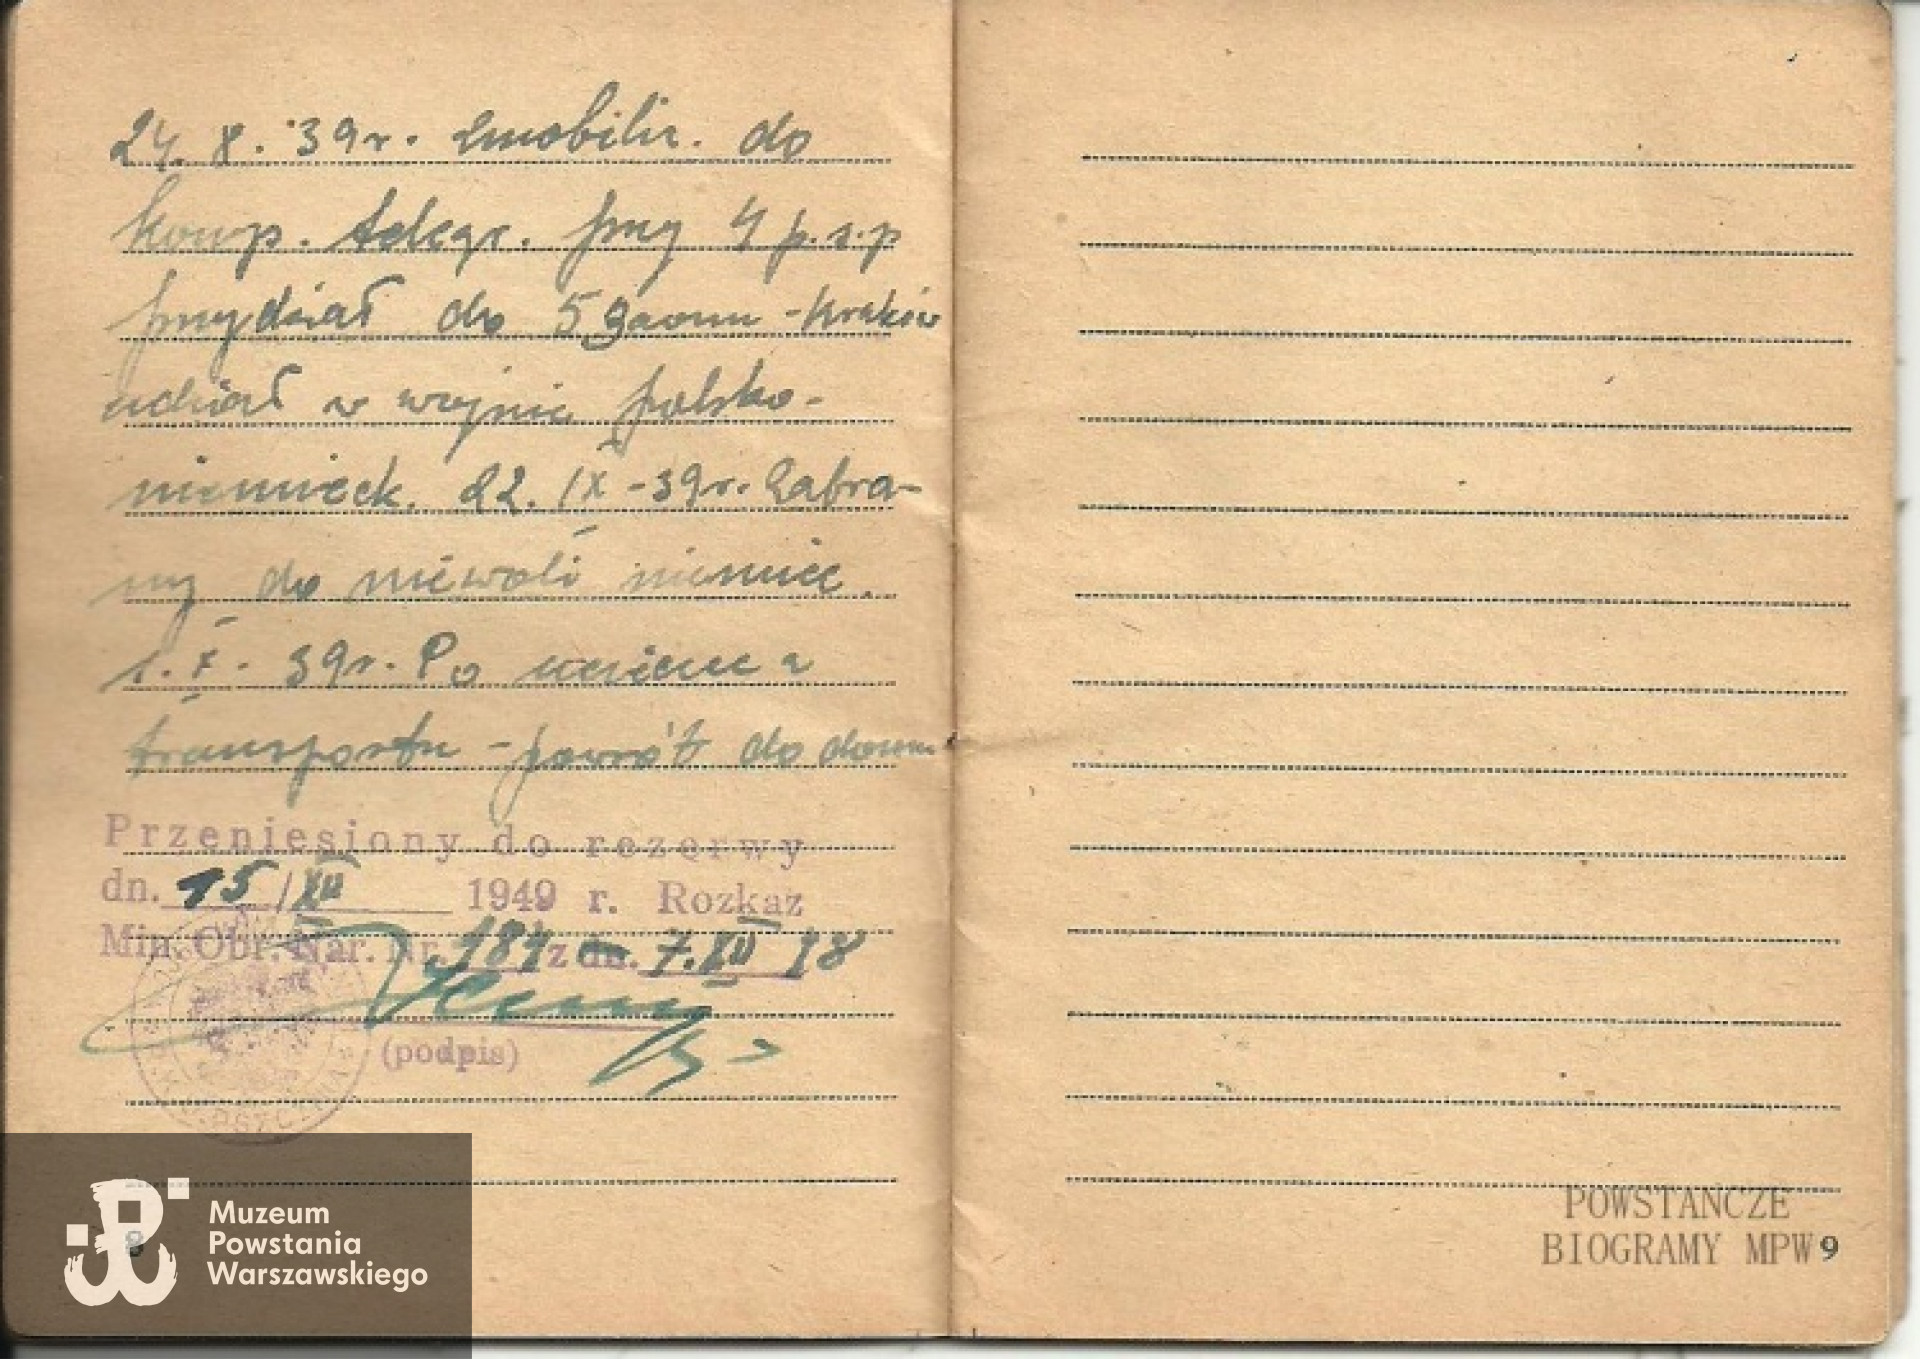 24. 8. 39r. zmobiliz. do
komp. telegr. przy 4 p.s.p
przydział do 5 gaonu - Kraków
udział w wojnie polsko-
niemieck. 22. IX - 39r. Zabra-
ny do niewoli niemiec.
1. X. 39r. Po ucieczce z
transportu - powrót do domu
Przeniesiony do rezerwy
dn. 15/XII 1949 r. Rozkaz
Min. Obr. Nar. Nr. 181 z dn. 7.XII
(podpis)
8
Muzeum
Powstania
Warszawskiego
POWSTAŃCZE
BIOGRAMY MPW 9